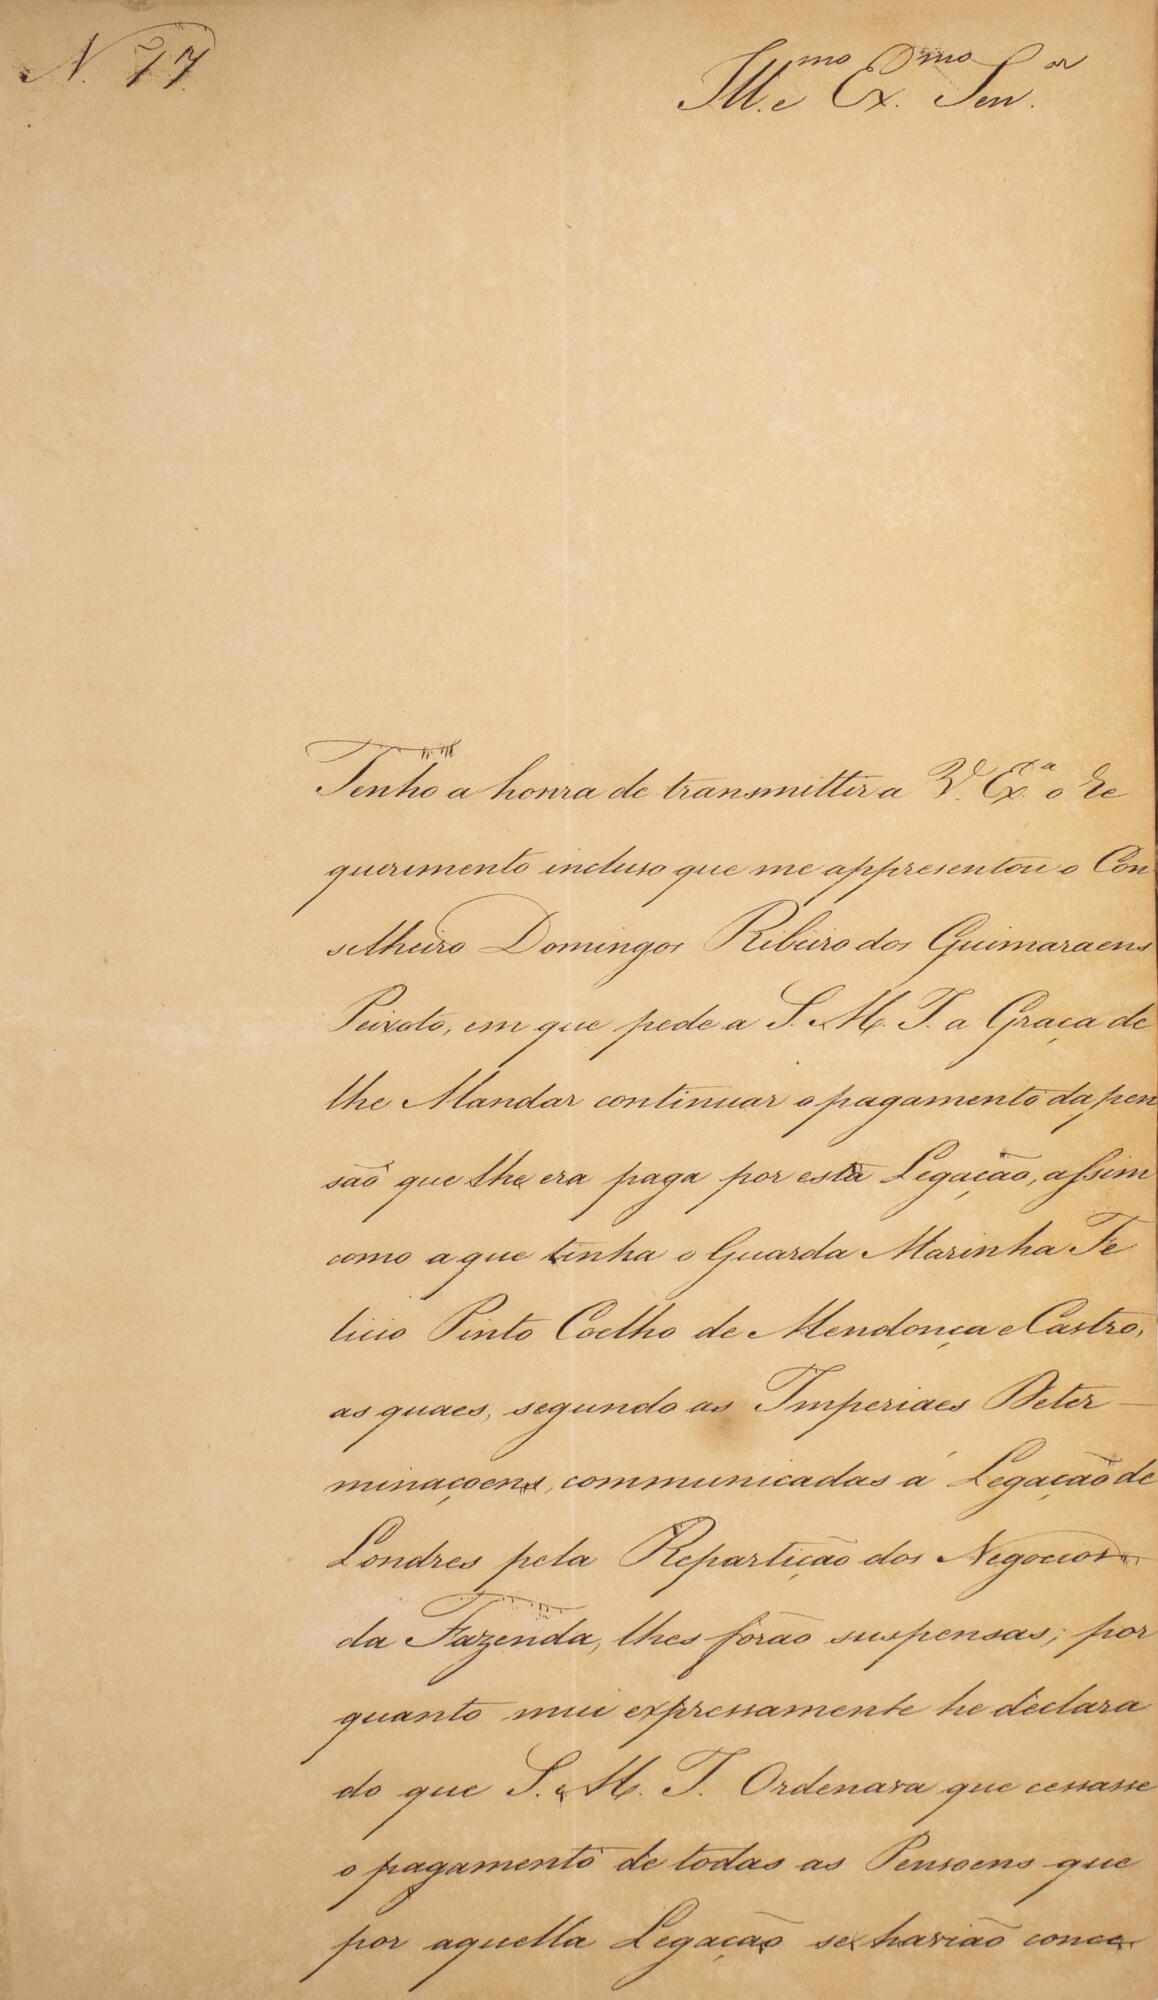 N. 77
Ill.mo e Ex.mo Sen.or
Tenho a honra de transmittir a V. Ex.a o re
querimento incluso que me appresentou o Con
selheiro Domingos Ribeiro dos Guimaraens
Peixoto, em que pede a S. M. I. a Graça de
lhe Mandar continuar o pagamento da pen
são que lhe era paga por esta Legação, assim
como a que tinha o Guarda Marinha Fe
licio Pinto Coelho de Mendonça e Castro,
as quaes, segundo as Imperiaes Deter
minaçoens, communicadas á Legação de
Londres pela Repartição dos Negocios
da Fazenda, lhes forão suspensas; por
quanto mui expressamente he declara
do que S. M. I. Ordenara que cessasse
o pagamento de todas as Pensoens que
por aquella Legação se havião conce